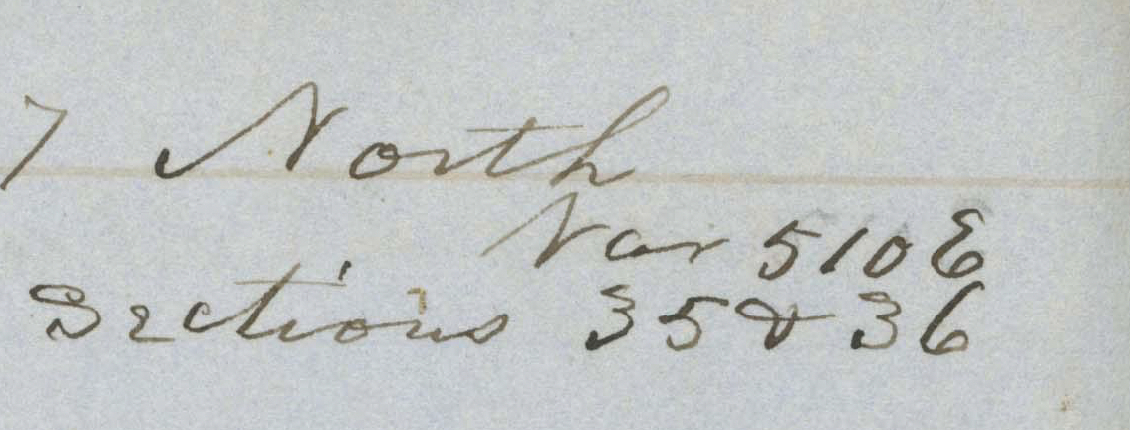 7 North
Var 510 E
Sections 35 & 36